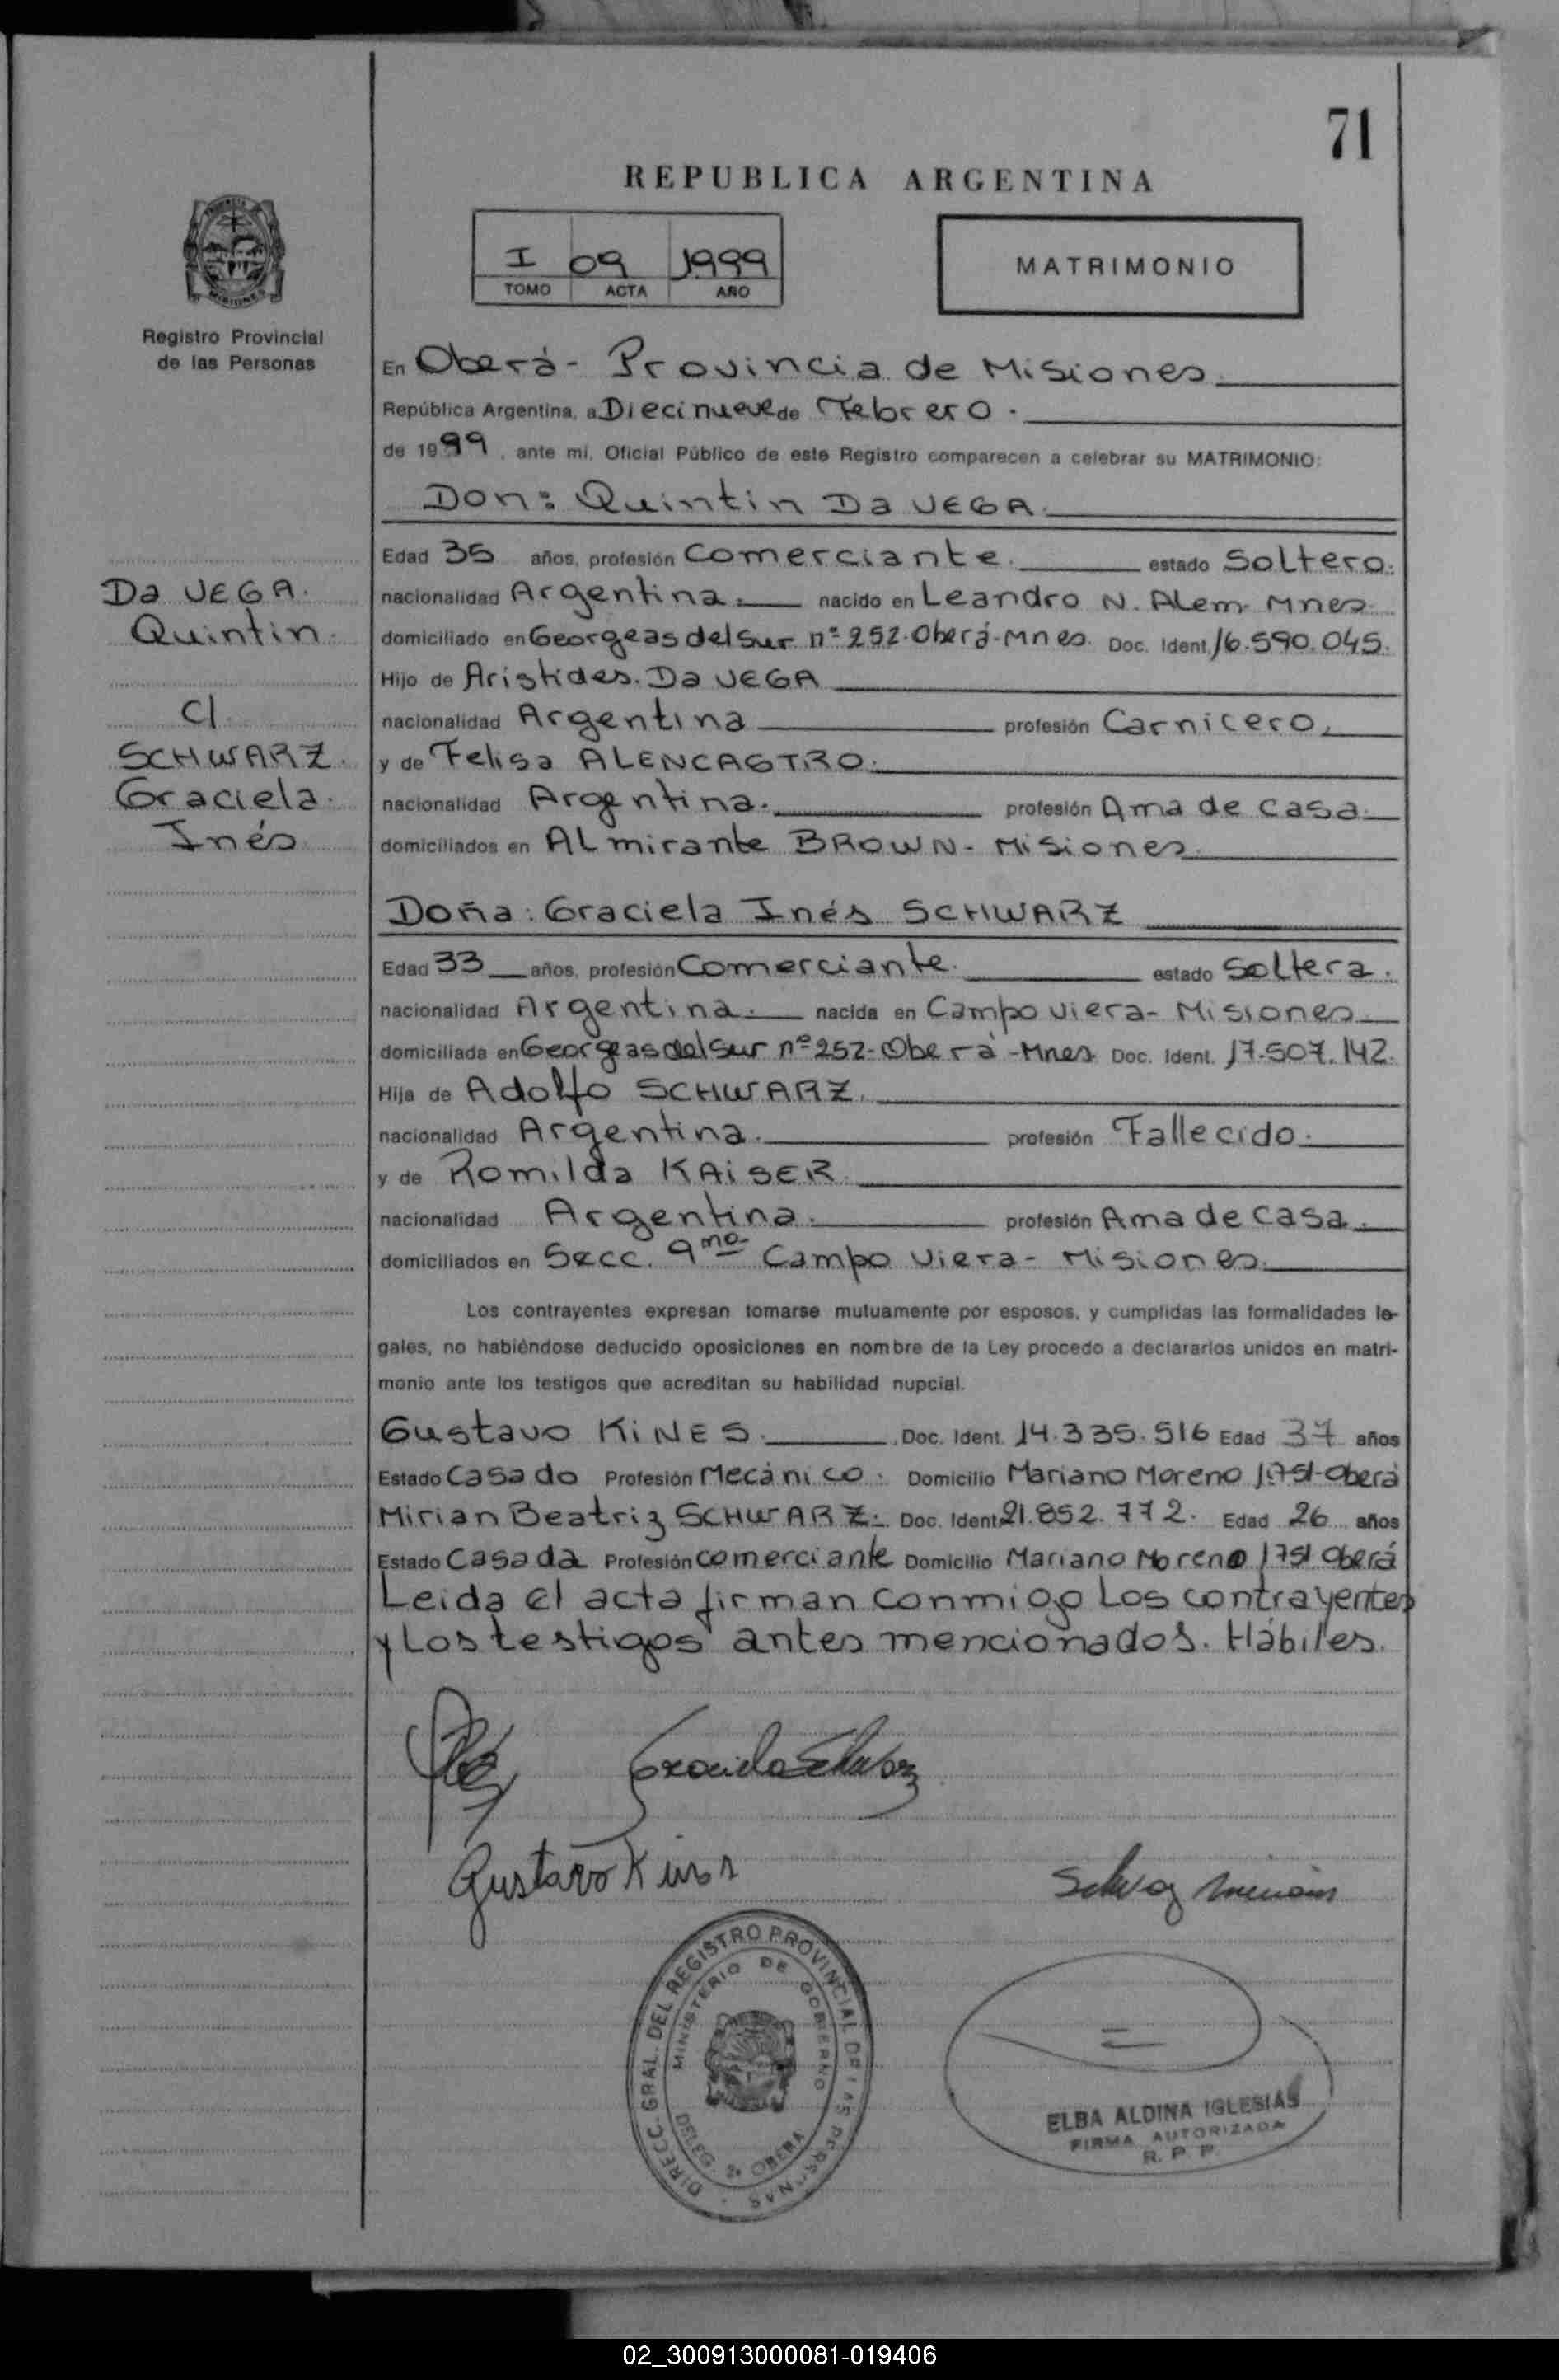 71
REPUBLICA ARGENTINA
I 09 1999
TOMO ACTA AÑO
MATRIMONIO
Registro Provincial
de las Personas
Da VEGA.
Quintin.
c/.
SCHWARZ.
Graciela.
Inés
En Oberá- Provincia de Misiones.
República Argentina, a Diecinueve de Febrero.
de 1999, ante mi, Oficial Público de este Registro comparecen a celebrar su MATRIMONIO:
Don: Quintin Da VEGA.
Edad 35 años, profesión Comerciante. estado Soltero.
nacionalidad Argentina. nacido en Leandro N. Alem Mnes.
domiciliado en Georgeas del Sur nº 252-Oberá-Mnes. Doc. Ident. 16.590.045.
Hijo de Aristides. Da VEGA
nacionalidad Argentina profesión Carnicero.
y de Felisa ALENCASTRO.
nacionalidad Argentina. profesión Ama de casa.
domiciliados en Almirante BROWN- Misiones.
Doña: Graciela Inés SCHWARZ
Edad 33 años, profesión Comerciante. estado Soltera.
nacionalidad Argentina. nacida en Campo Viera- Misiones
domiciliada en Georgeas del Sur nº 252-Oberá-Mnes. Doc. Ident. 17.507.142.
Hija de Adolfo SCHWARZ.
nacionalidad Argentina. profesión Fallecido.
y de Romilda KAiSER.
nacionalidad Argentina. profesión Ama de casa.
domiciliados en Secc. 9na Campo Viera- Misiones.
Los contrayentes expresan tomarse mutuamente por esposos, y cumplidas las formalidades le-
gales, no habiéndose deducido oposiciones en nombre de la Ley procedo a declararlos unidos en matri-
monio ante los testigos que acreditan su habilidad nupcial.
Gustavo KiNES. Doc. Ident. 14.335.516 Edad 37 años
Estado Casado Profesión Mecánico. Domicilio Mariano Moreno 1751-Oberá
Mirian Beatriz SCHWARZ. Doc. Ident. 21.852.772. Edad 26 años
Estado Casada Profesión comerciante Domicilio Mariano Moreno 1751 Oberá
Leida el acta firman conmigo Los contrayentes
y Los testigos antes mencionados. Hábiles.
Graciela Schwarz
Gustavo Kines
Schwarz Mirian
DIRECC. GRAL. DEL REGISTRO PROVINCIAL DE LAS PERSONAS
MINISTERIO DE GOBIERNO
OBERA
ELBA ALDINA IGLESIAS
FIRMA AUTORIZADA
R. P. P.
02_300913000081-019406